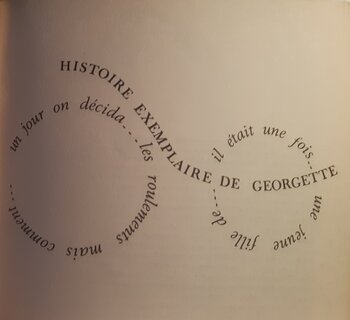 HISTOIRE EXEMPLAIRE DE GEORGETTE
un jour on décida... les roulements mais comment....
il était une fois... une jeune fille de....